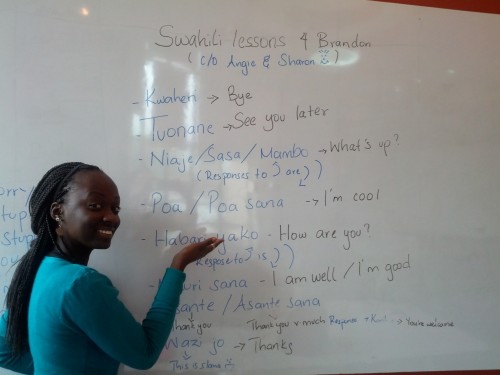 Swahili lessons 4 Brandon
( C/O Angie & Sharon )
- Kwaheri → Bye
- Tuonane → See you later
- Niaje/Sasa/Mambo → What's up?
(Responses to are)
- Poa / Poa sana → I'm cool
- Habari yako - How are you?
is)
uri sana - I am well / I'm good
sante / Asante sana
Thank you Thank you v much Response → You're welcome
Nazi jo → Thanks
This is slang